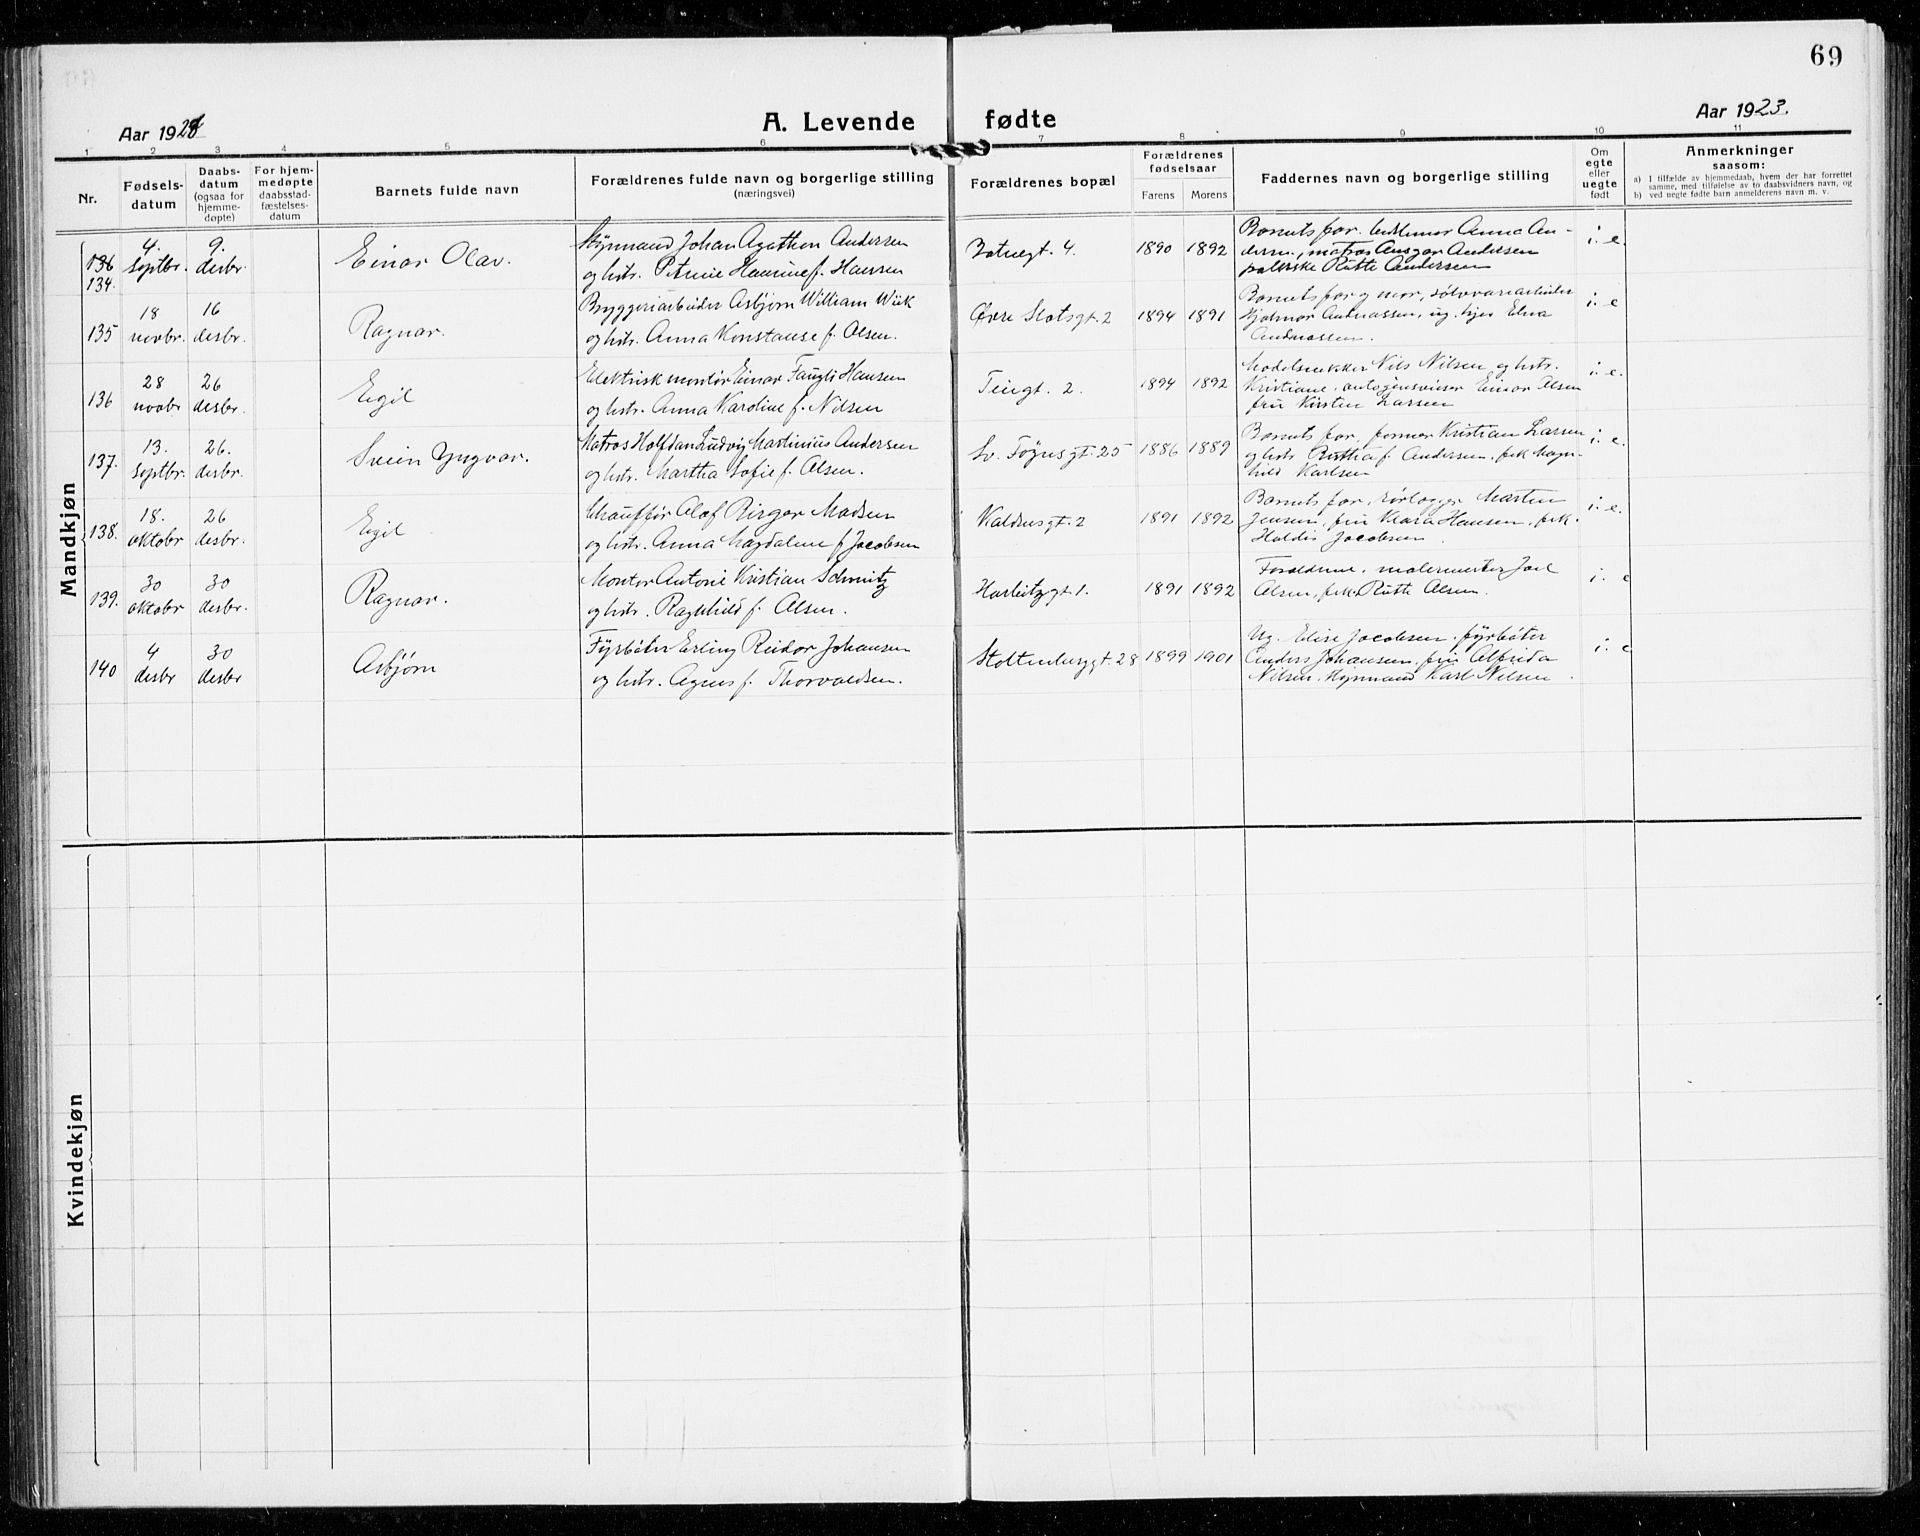 69
Aar 1923.
A. Levende fødte
Aar 1923.
1 2 3 4 5 6 7 8 9 10 11
Nr.
Fødsels-
datum
Daabs-
datum
(ogsaa for
hjemme-
døpte)
For hjem-
medøpte
daabsstad-
fæstelses-
datum
Barnets fulde navn
Forældrenes fulde navn og borgerlige stilling
(næringsvei)
Forældrenes bopæl
Forældrenes
fødselsaar
Farens Morens
Faddernes navn og borgerlige stilling
Om
egte
eller
uegte
født
Anmerkninger
saasom:
a) I tilfælde av hjemmedaab, hvem der har forrettet
samme, med tilføielse av to daabsvidners navn, og
b) ved uegte fødte barn anmelderens navn m. v.
Mandkjøn
136 4. 9. Styrmand Johan Agathon Andersen Barnets far. Anna An-
134. Septbr. desbr. Einar Olav. og hstr. Petrine f. Hansen gt. 4. 1890 1892 dersen, matros Ansgar Andersen i. e.
Ruth Andersen
18 16 Bryggeriarbeider Asbjørn William Wiik Barnets far og mor, sølvvarearbeider
135 novbr. desbr. Ragnar. og hstr. Anna Konstanse f. Olsen. Øvre Slotsgt. 2 1894 1891 Hjalmar Andreassen, ug. Elna i. e
Andreassen.
28 26 Elektrisk montør Einar Faugli Hansen Modelsnekker Nils Nilsen og hstr.
136 novbr desbr. Egil og hstr. Anna Karoline f. Nilsen gt. 2. 1894 1892 Kristiane, Einar Olsen i. e.
fru Kirsten Larsen
13. 26. Matros Halfdan Ludvig Martinius Andersen Barnets far, former Kristian Larsen
137. Septbr. desbr. Svein Yngvar. og hstr. Martha Sofie f. Olsen. Sv. Føynsgt. 25 1886 1889 og hstr. f. Andersen, frk. Magn- i. e.
hild Karlsen
18. 26 Chauffør Olaf Birger Madsen Barnets far, rørlægger Martin
138. oktobr desbr. Egil og hstr. Anna Magdalene f. Jacobsen gt. 2 1891 1892 Jensen, fru Klara Hansen, frk. i. e.
Haldis Jacobsen.
30 30 Montør Antonie Kristian Schmitz Forældrene. malermester
139. oktobr desbr. Ragnar. og hstr. Ragnhild f. Olsen. gt. 1. 1891 1892 Olsen, frk. Ruth Olsen. i. e
4 30 Fyrbøter Erling Reidar Johansen Ug. Elise Jacobsen. fyrbøter
140 desbr desbr Asbjørn og hstr. Agnes f. Thorvaldsen. Stoltenbergt. 28 1899 1901 Anders Johansen, fru Alfrida i. e
Nilsen. Styrmand Karl Nilsen.
Kvindekjøn